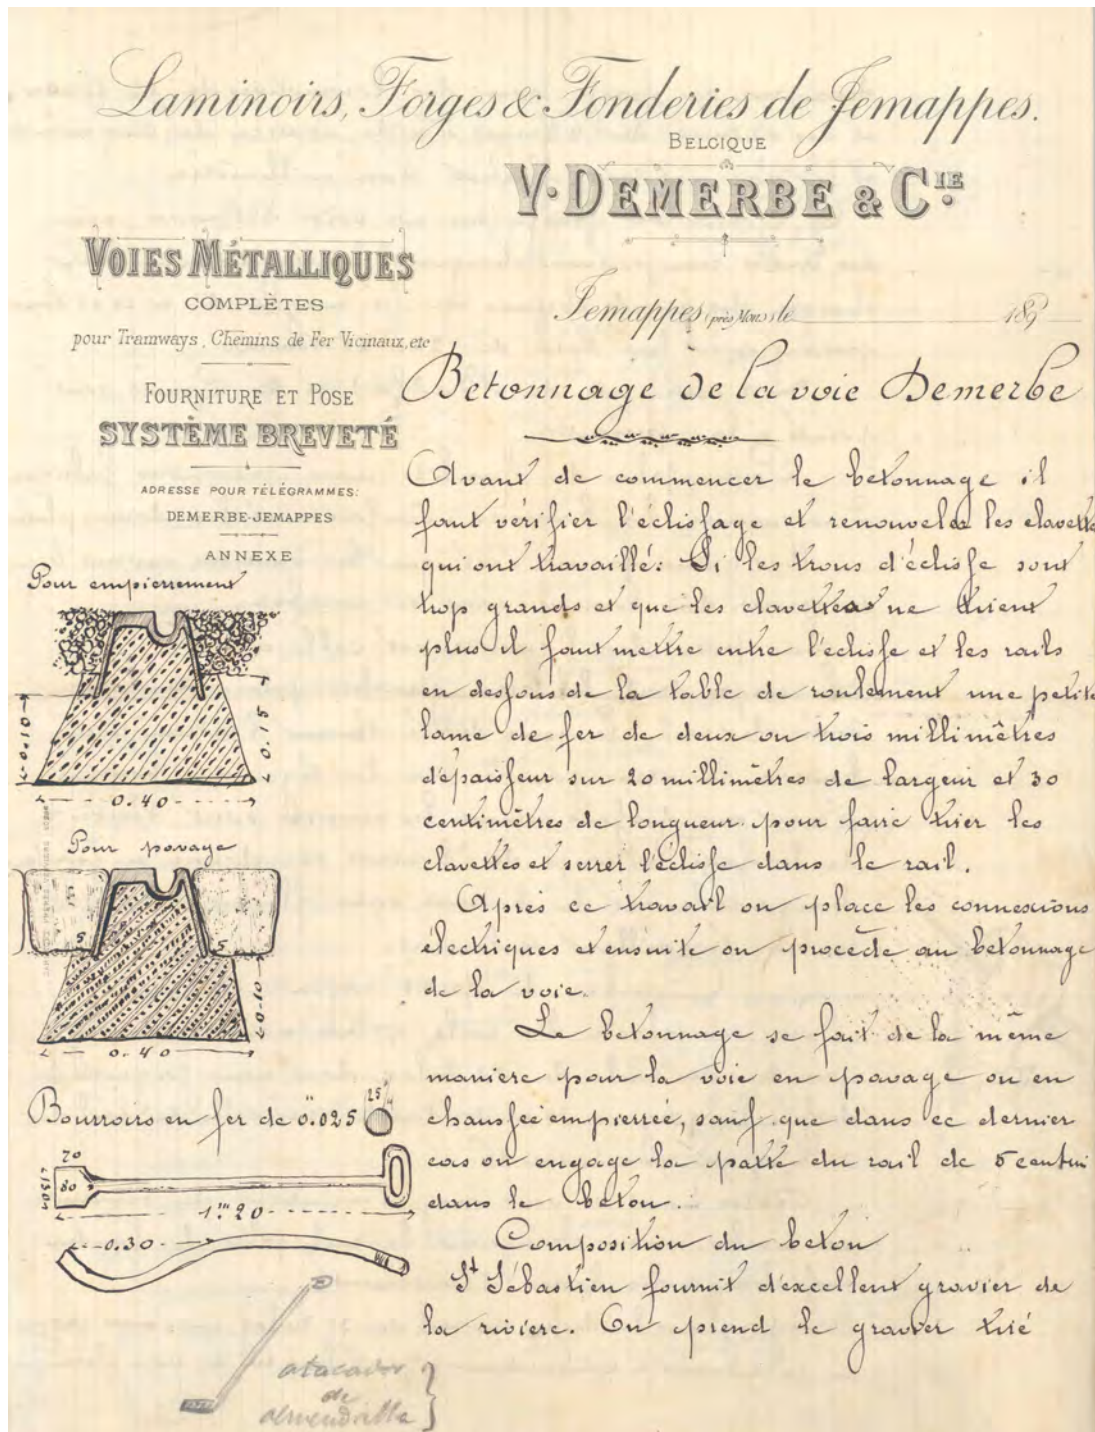 Laminoirs, Forges & Fonderies de Jemappes.
BELGIQUE
V. DEMERBE & CIE
VOIES MÉTALLIQUES
COMPLÈTES
pour Tramways, Chemins de Fer Vicinaux, etc
FOURNITURE ET POSE
SYSTÈME BREVETÉ
ADRESSE POUR TÉLÉGRAMMES:
DEMERBE-JEMAPPES
ANNEXE
Jemappes (près Mons) le 189
Betonnage de la voie Demerbe
Avant de commencer le betonnage il
faut vérifier l'éclissage et renouveler les clavette
qui ont travaillé: Si les trous d'éclisse sont
trop grands et que les clavettes ne tirent
plus il faut mettre entre l'éclisse et les rails
en dessous de la table de roulement une petite
lame de fer de deux ou trois millimètres
d'épaisseur sur 20 millimètres de largeur et 30
centimètres de longueur pour faire tirer les
clavettes et serrer l'éclisse dans le rail.
Après ce travail on place les connexions
électriques et ensuite on procède au betonnage
de la voie.
Le betonnage se fait de la même
maniere pour la voie en pavage ou en
chaussée empierrée, sauf que dans ce dernier
cas on engage la patte du rail de 5 centim
dans le beton.
Composition du beton
St Sébastien fournit d'excellent gravier de
la riviere. On prend le gravier trié
Pour empierrement
0.10
0.15
0.40
Pour pavage
5
5
0.10
0.40
Bourroirs en fer de 0.m025
25
70
80
130
1m20
0.30
atacador
de
almendrilla